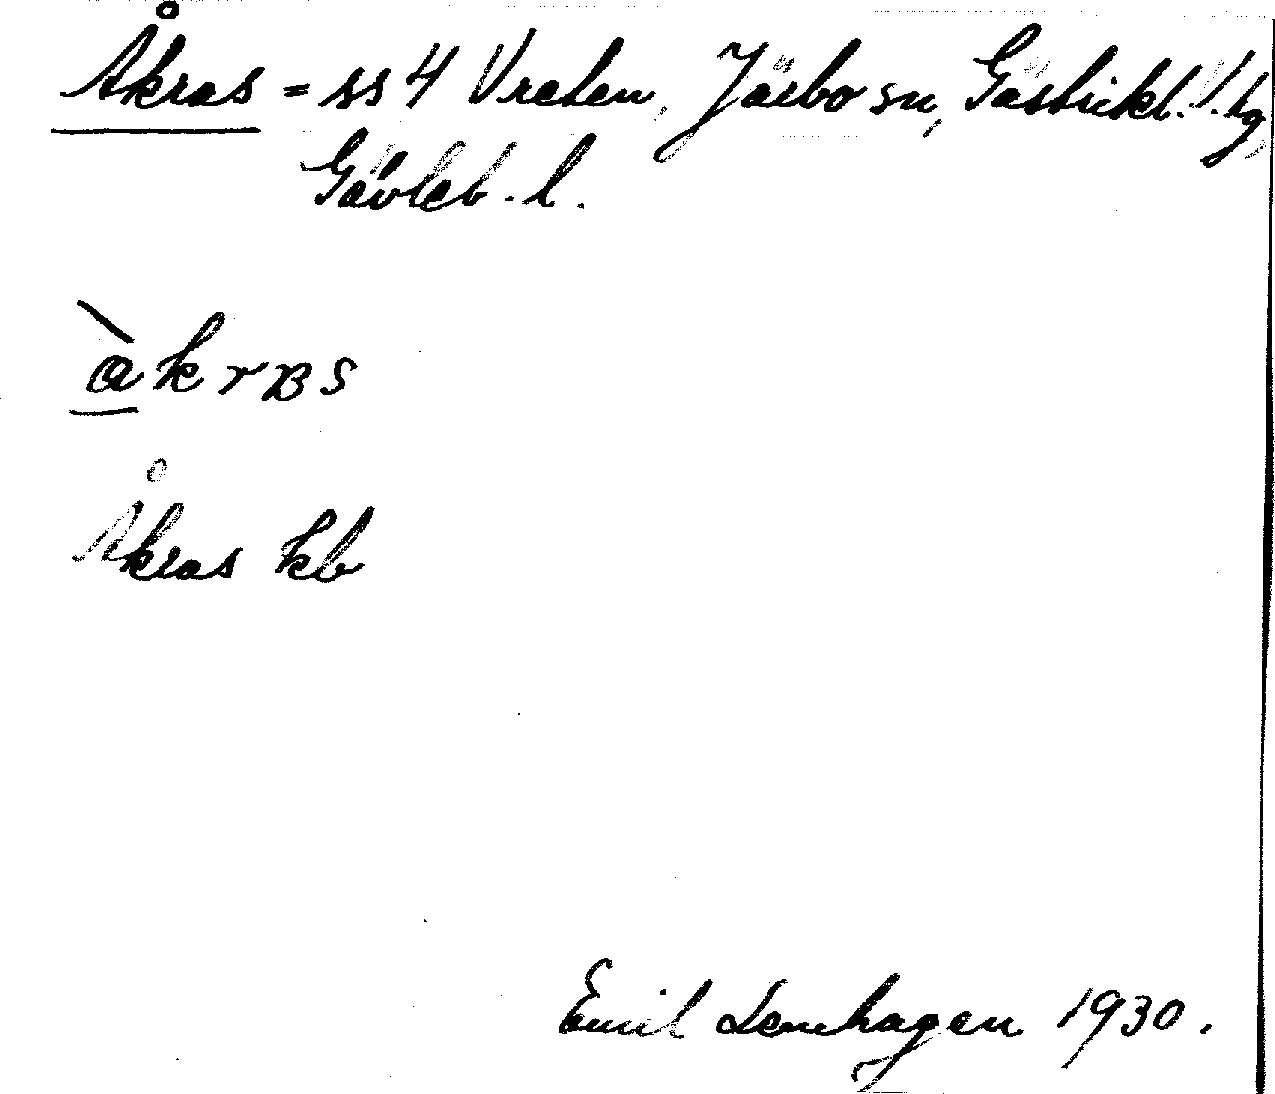 Åkras = ss 4 Vreten, Järbo sn, Gästrikl. V. tg,
Gävleb. l.
åkrʙs
Åkras kb
Emil Lenhagen 1930.